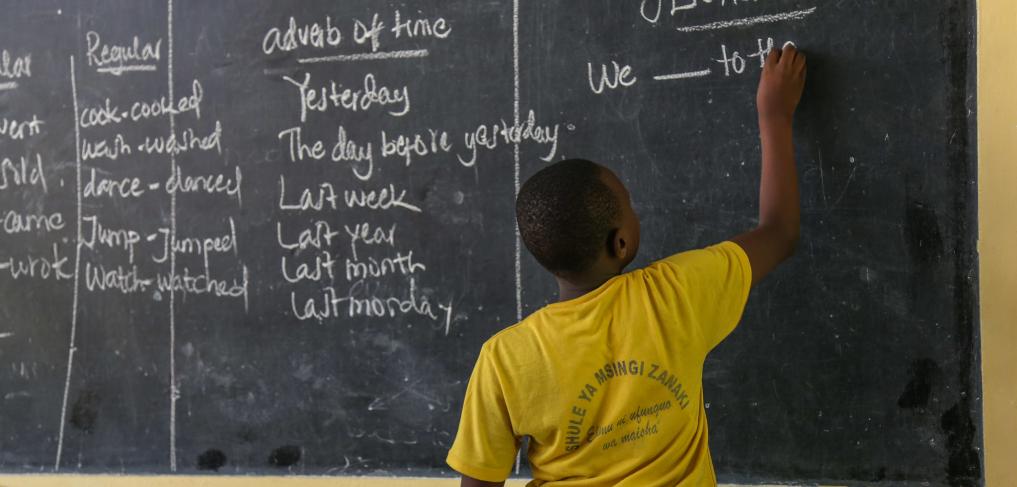 Regular
cook-cooked
wash-washed
dance-danced
Jump-Jumped
Watch-watched
adverb of time
Yesterday
The day before yesterday.
Last week
Last year
Last month
Last monday
We ___ to the
SHULE YA MSINGI ZANAKI
Elimu ni ufunguo
wa maisha